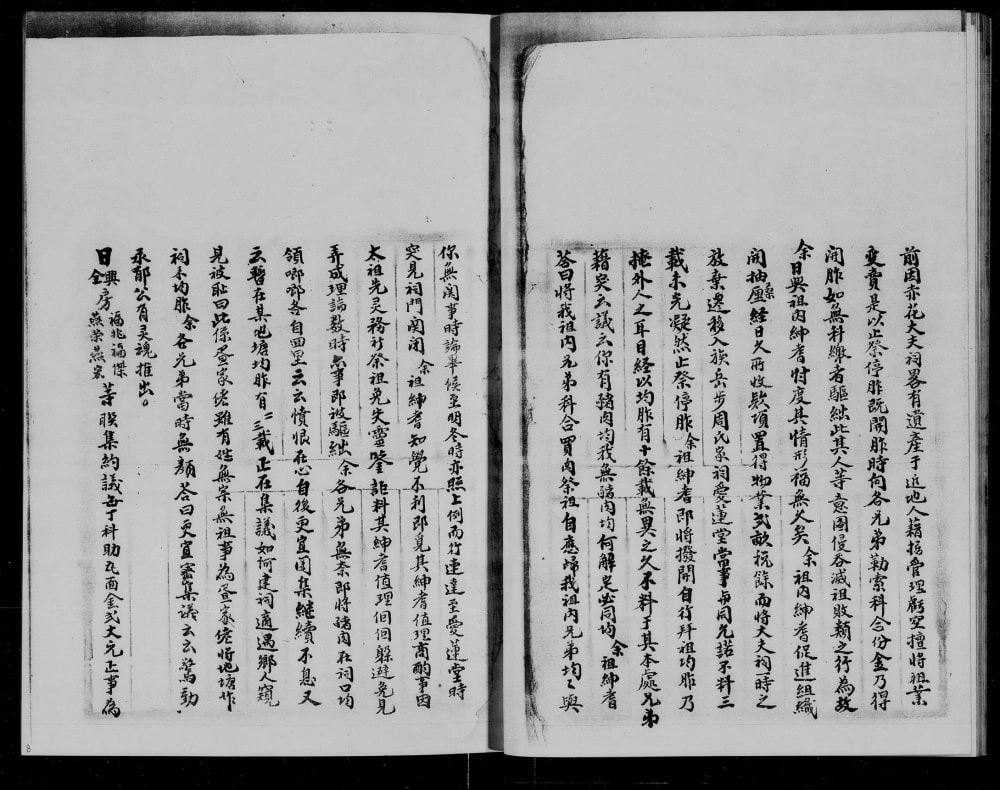 前因赤花大夫祠畧有遺產于近地人藉按管理虧空擅將祖業
變賣是以止祭停胙既開胙時向各兄弟勒索科合份金乃得
開胙如無科繳者驅絀此其人等意圖侵吞滅祖敗類之行為故
余日興祖內紳耆忖度其情形福無久矣余祖內紳耆促進組織
開抽壓桑經日久所收欵項置得物業弍畝扤餘而將大夫祠一時之
放棄遷移入族岳步周氏家祠愛蓮堂當事與同允諾不料三
載未允凝然止祭停胙余祖紳耆即將撥開自行拜祖均胙乃
掩外人之耳目經以均胙有十餘載無異之久不料于其本處兄弟
藉矣云議云你有豬肉均我無豬肉均何解定必同均余祖紳耆
答曰將我祖內兄弟科合買肉祭祖自應歸我祖內兄弟均々與
你無関事時論畢候至明冬時亦照上例而行連達至愛蓮堂時
突見祠門関閉余祖紳耆知覺不利即覓其紳耆值理商酌事因
太祖先灵務祈祭祖免失靈鑒詎料其紳耆值理徊徊躲避免見
弄成理論數時亦事即被驅絀余各兄弟無奈即將豬肉在祠口均
領嘟嘟各自回里云云憤恨在心自後更宜圖集継續不息又
云暫在某吔塘均胙有二三載正在集議如何建祠適遇鄉人窺
見被耻曰此係蛋家佬雖有姓無宗無祖事為蛋家佬將地塘作
祠來均胙余各兄弟當時無顏答曰更宜密集議云云驚動
承郁公有灵魂推出。
日興房福兆福傑
全 燕榮燕宏等聚集約議每丁科助瓦面金弍大元正事為
8